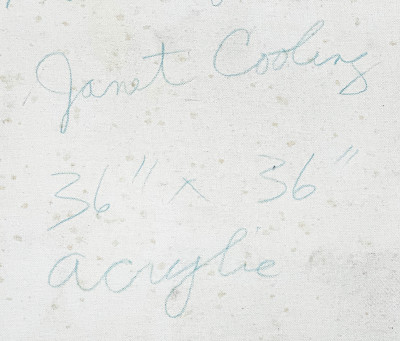 Janet Cooling
36" x 36"
acrylic